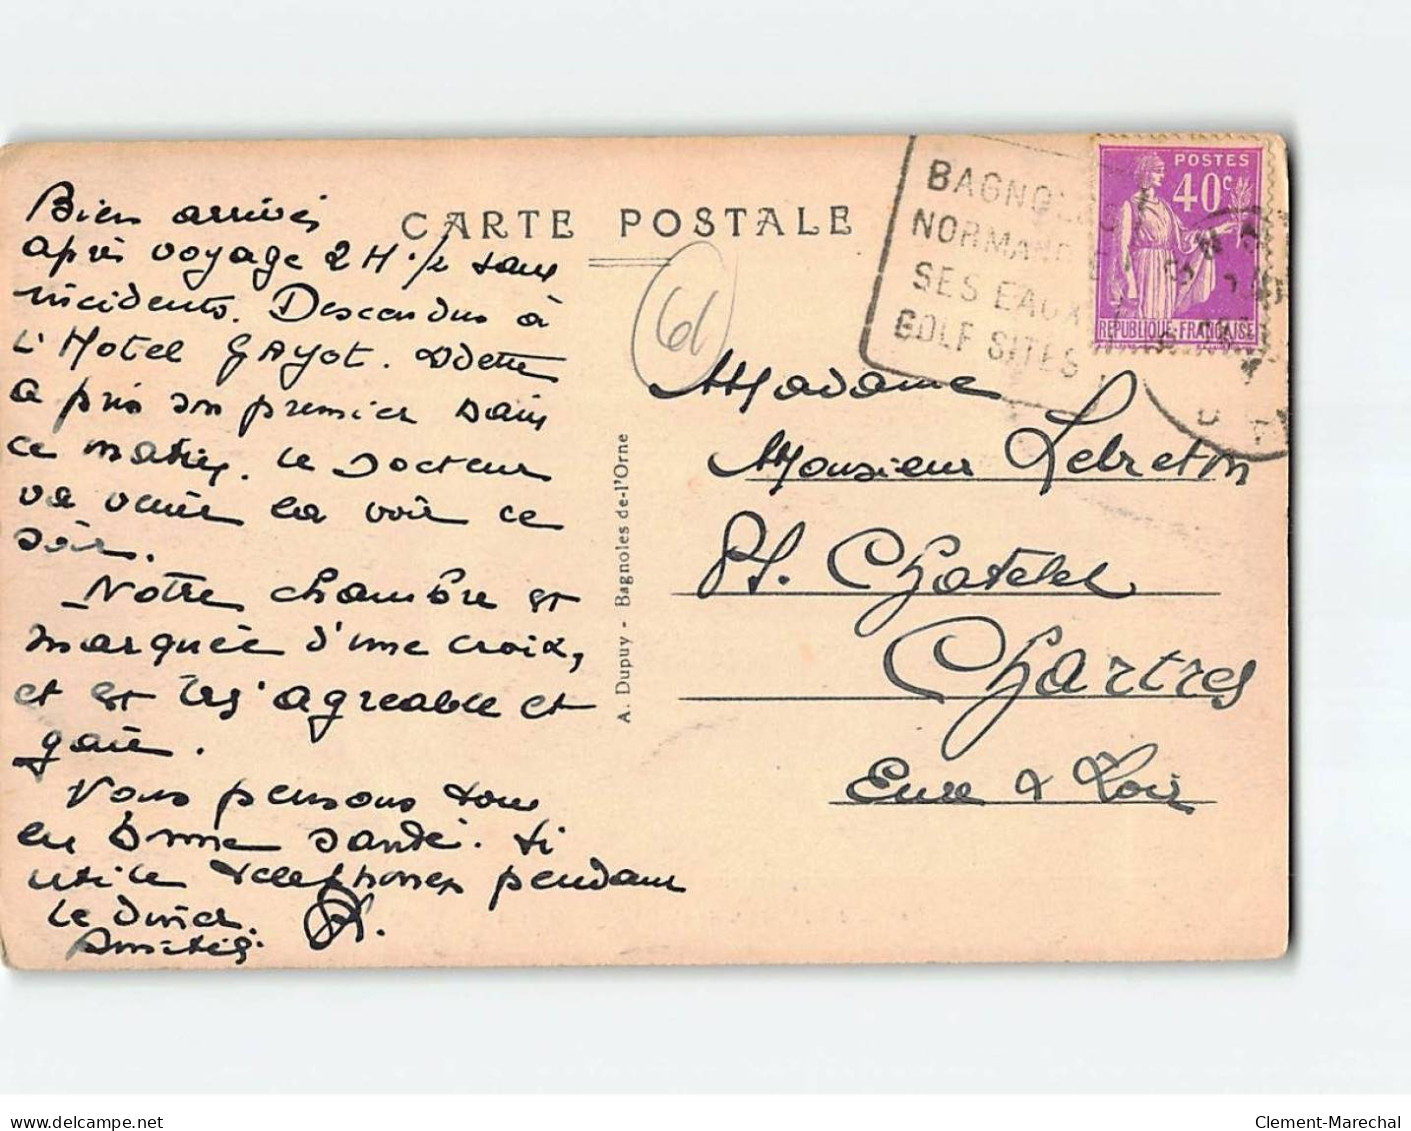 Bien arrivés
après voyage 2 H. 1/2 sans
incidents. Descendus à
L'Hotel GAYOT. Odette
a pris son premier bain
ce matin. Le Docteur
va venir la voir ce
soir.
Notre chambre est
marquée d'une croix,
et est très agreable et
gaie.
Vous pensons tous
en bonne santé. Si
utile telephones pendant
le diner.
Amitiés.
CARTE POSTALE
61
A. Dupuy - Bagnoles-de-l'Orne
BAGNOLES
NORMANDIE
SES EAUX
GOLF SITES
POSTES
40c
REPUBLIQUE-FRANÇAISE
Madame
Monsieur Lebreton
Pl. Chatelet
Chartres
Eure & Loir
delcampe.net
Clement-Marechal